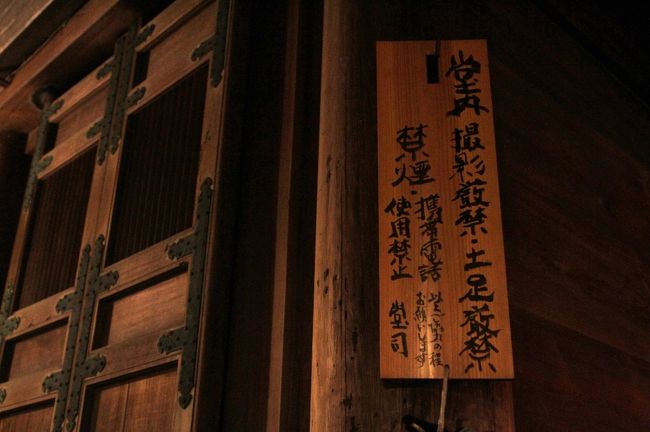 堂内 撮影厳禁・土足厳禁
禁煙・携帯電話
使用禁止
協力の程
お願いします
堂司